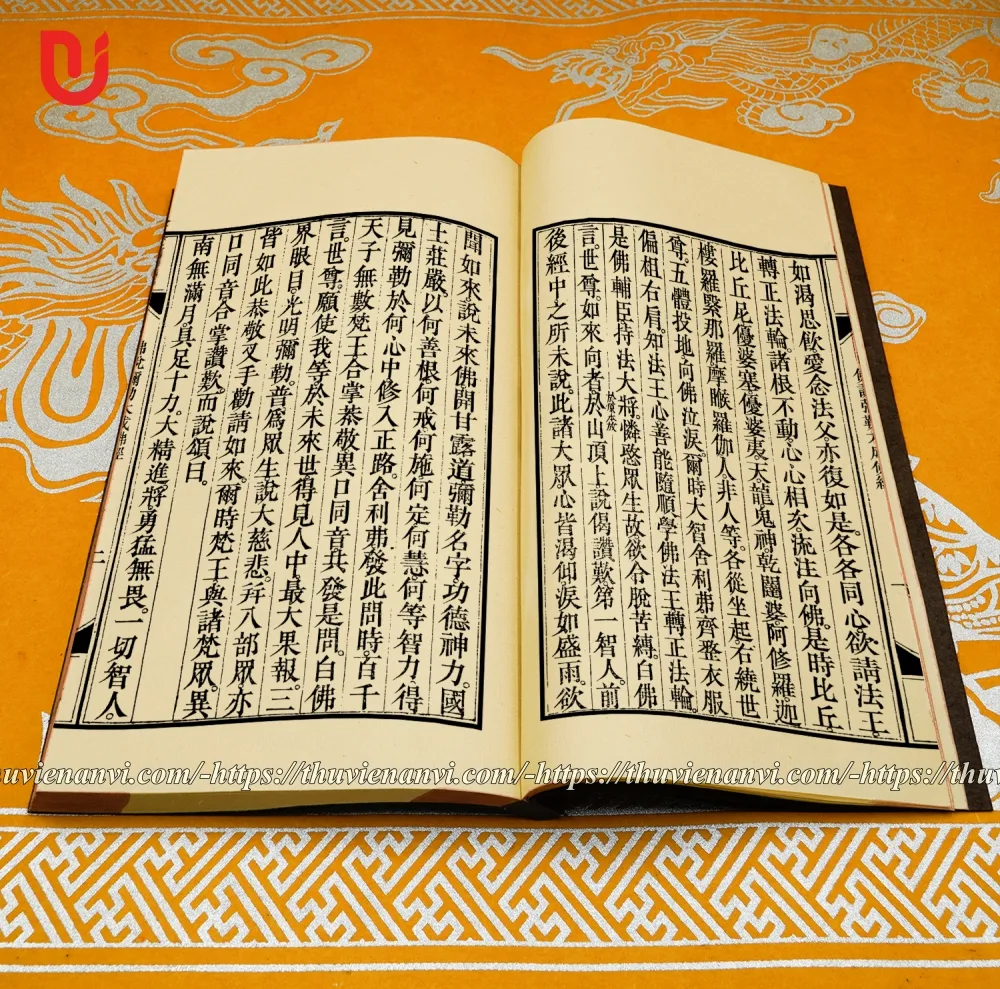 如渴思飲愛念法父亦復如是各各同心欲請法王
轉正法輪。諸根不動。心心相次。流注向佛。是時比丘
比丘尼優婆塞優婆夷天龍鬼神。乾闥婆。阿修羅。迦
樓羅緊那羅摩睺羅伽人非人等。各從坐起右繞世
尊。五體投地向佛泣淚。爾時大智舍利弗齊整衣服
偏袒右肩。知法王心善能隨順學佛法王轉正法輪。
是佛輔臣持法大將。憐愍眾生故。欲令脫苦縛。白佛
言。世尊。如來向者於山頂上說偈讚歎。第一智人。前
後經中之所未說此諸大眾心皆渴仰。淚如盛雨。欲
聞如來說未來佛開甘露道彌勒名字功德神力。國
土莊嚴以何善根。何戒何施何定何慧。何等智力。得
見彌勒於何心中修入正路。舍利弗發此問時。百千
天子無數梵王合掌恭敬異口同音。共發是問。白佛
言。世尊。願使我等於未來世得見人中最大果報。三
界眼目。光明彌勒。普為眾生說大慈悲。并八部眾亦
皆如此恭敬叉手勸請如來。爾時梵王與諸梵眾。異
口同音合掌讚歎。而說頌曰。
南無滿月。具足十力。大精進將。勇猛無畏。一切智人。
huvienanvi.com/-https://thuvienanvi.com/-https://thuvienanvi.com/-https://thuvi